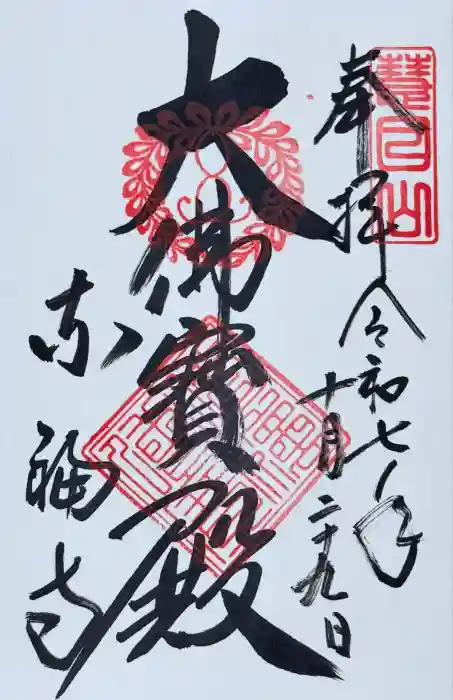 慧日山
奉拝 令和七年
十月二十九日
大佛寳殿
東福寺